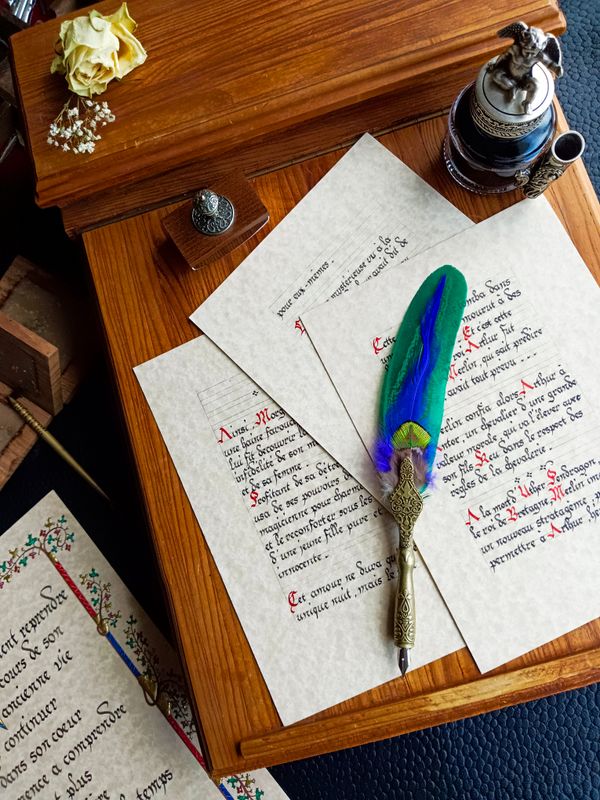 pour eux-mêmes.
mystérieuse où à la
avait dit de
Cette
omba dans
mourut à des
Et c'est cette
roi Arthur fut
Merlin, qui sait prédire
avait tout prévu
Merlin confia alors Arthur à
ntor, un chevalier d'une grande
valeur morale, qui va l'élever avec
son fils Keu dans le respect des
règles de la chevalerie.
A la mort d'Uther Pendragon,
le roi de Bretagne Merlin ima
un nouveau stratagème, p
permettre à Arthur,
Ainsi, Morg
une haine farouc
lui fit découvrir l
infidélité de son m
et de sa femme.
Profitant de sa déto
usa de ses pouvoirs d
magicienne pour charm
et le réconforter sous les
d'une jeune fille pure et
innocente.
Cet amour ne dura qu
unique nuit, mais le
ent reprendre
cours de son
ancienne vie
continuer
dans son coeur
mence à comprendre
plus
temps